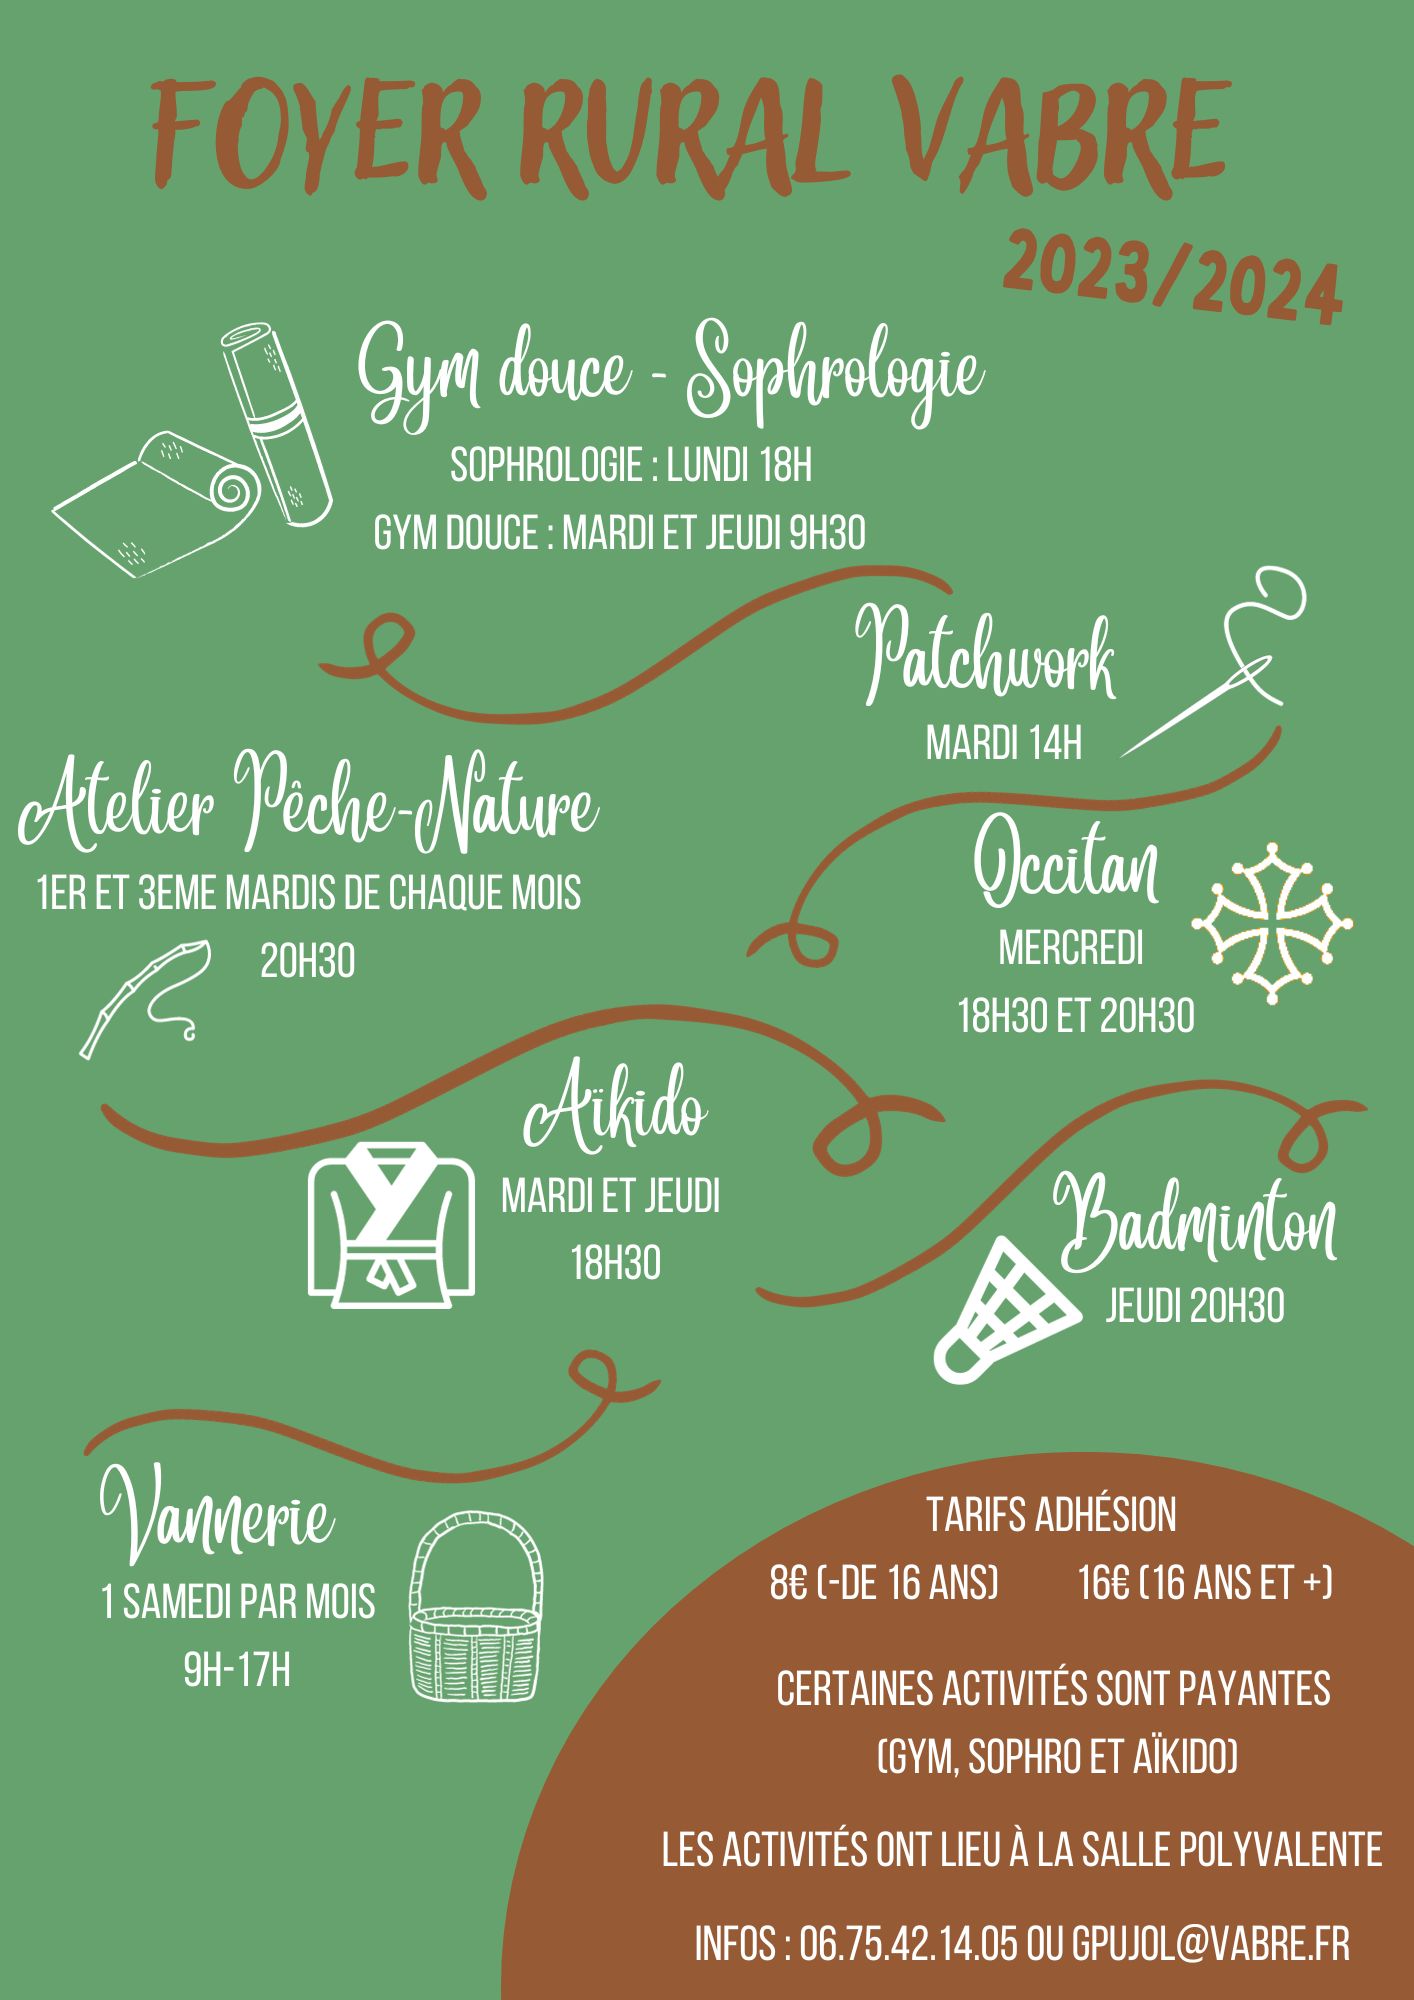 FOYER RURAL VABRE
2023/2024
Gym douce - Sophrologie
SOPHROLOGIE : LUNDI 18H
GYM DOUCE : MARDI ET JEUDI 9H30
Patchwork
MARDI 14H
Atelier Pêche-Nature
1ER ET 3EME MARDIS DE CHAQUE MOIS
20H30
Occitan
MERCREDI
18H30 ET 20H30
Aïkido
MARDI ET JEUDI
18H30
Badminton
JEUDI 20H30
Vannerie
1 SAMEDI PAR MOIS
9H-17H
TARIFS ADHÉSION
8€ (-DE 16 ANS) 16€ (16 ANS ET +)
CERTAINES ACTIVITÉS SONT PAYANTES
(GYM, SOPHRO ET AÏKIDO)
LES ACTIVITÉS ONT LIEU À LA SALLE POLYVALENTE
INFOS : 06.75.42.14.05 OU GPUJOL@VABRE.FR